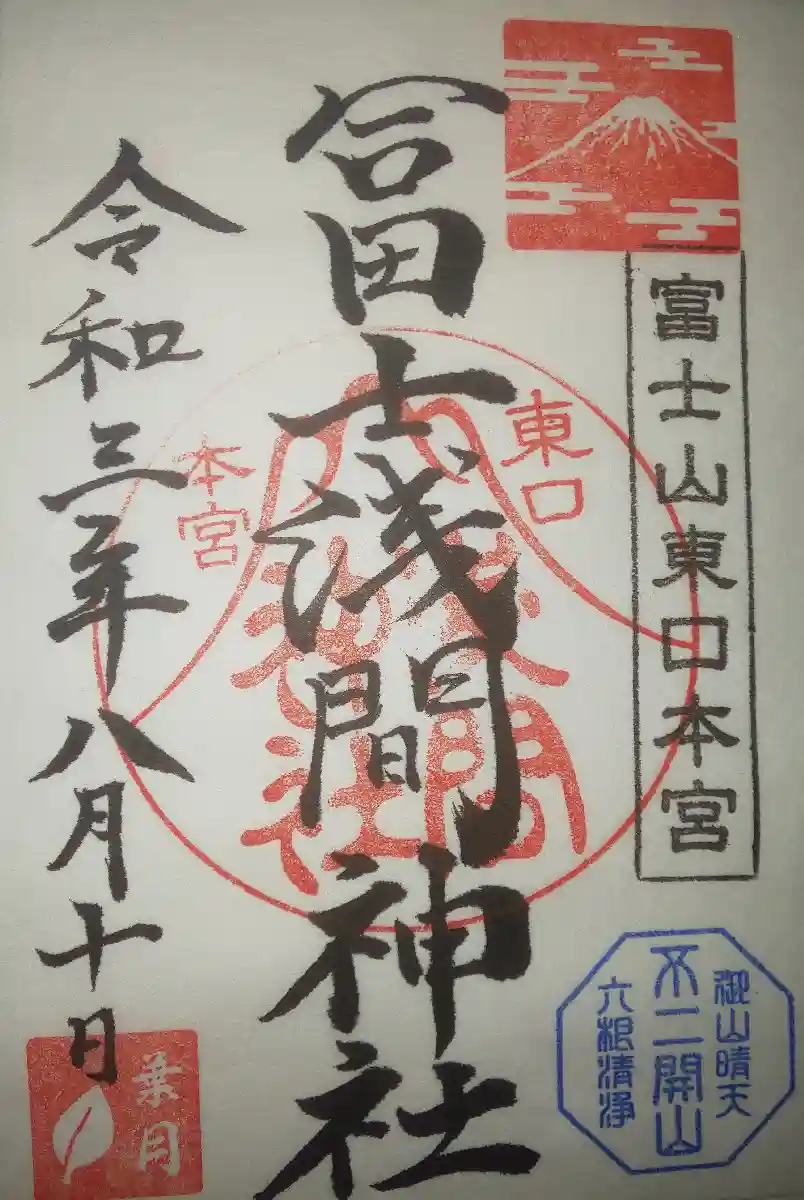 富士山東口本宮
冨士浅間神社
令和三年八月十日
東口
本宮
浅間
神社
御山晴天
不二開山
六根清浄
葉月